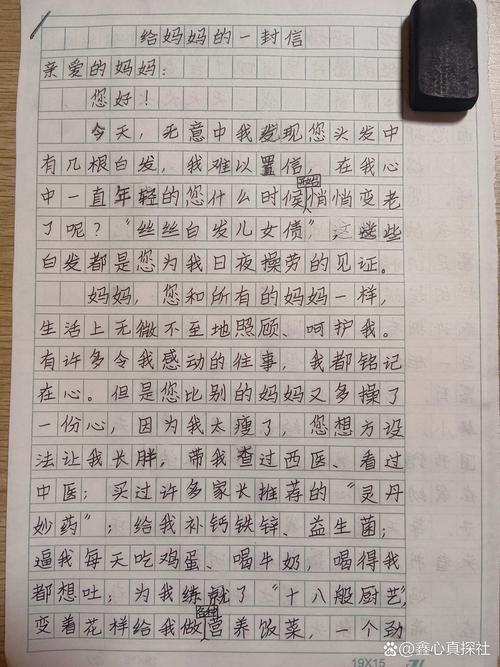 给妈妈的一封信
亲爱的妈妈：
您好！
今天，无意中我发现您头发中
有几根白发，我难以置信，在我心
中一直年轻的您什么时候开始悄悄变老
了呢？“丝丝白发儿女债”，这些
白发都是您为我日夜操劳的见证。
妈妈，您和所有的妈妈一样，
生活上无微不至地照顾、呵护我。
有许多令我感动的往事，我都铭记
在心。但是您比别的妈妈又多操了
一份心，因为我太瘦了，您想方设
法让我长胖，带我查过西医、看过
中医；买过许多家长推荐的“灵丹
妙药”；给我补钙铁锌、益生菌；
逼我每天吃鸡蛋、喝牛奶，喝得我
都想吐；为我练就了“十八般厨艺”，
变着花样给我做营养饭菜，一个劲
19X15
@鑫心真探社